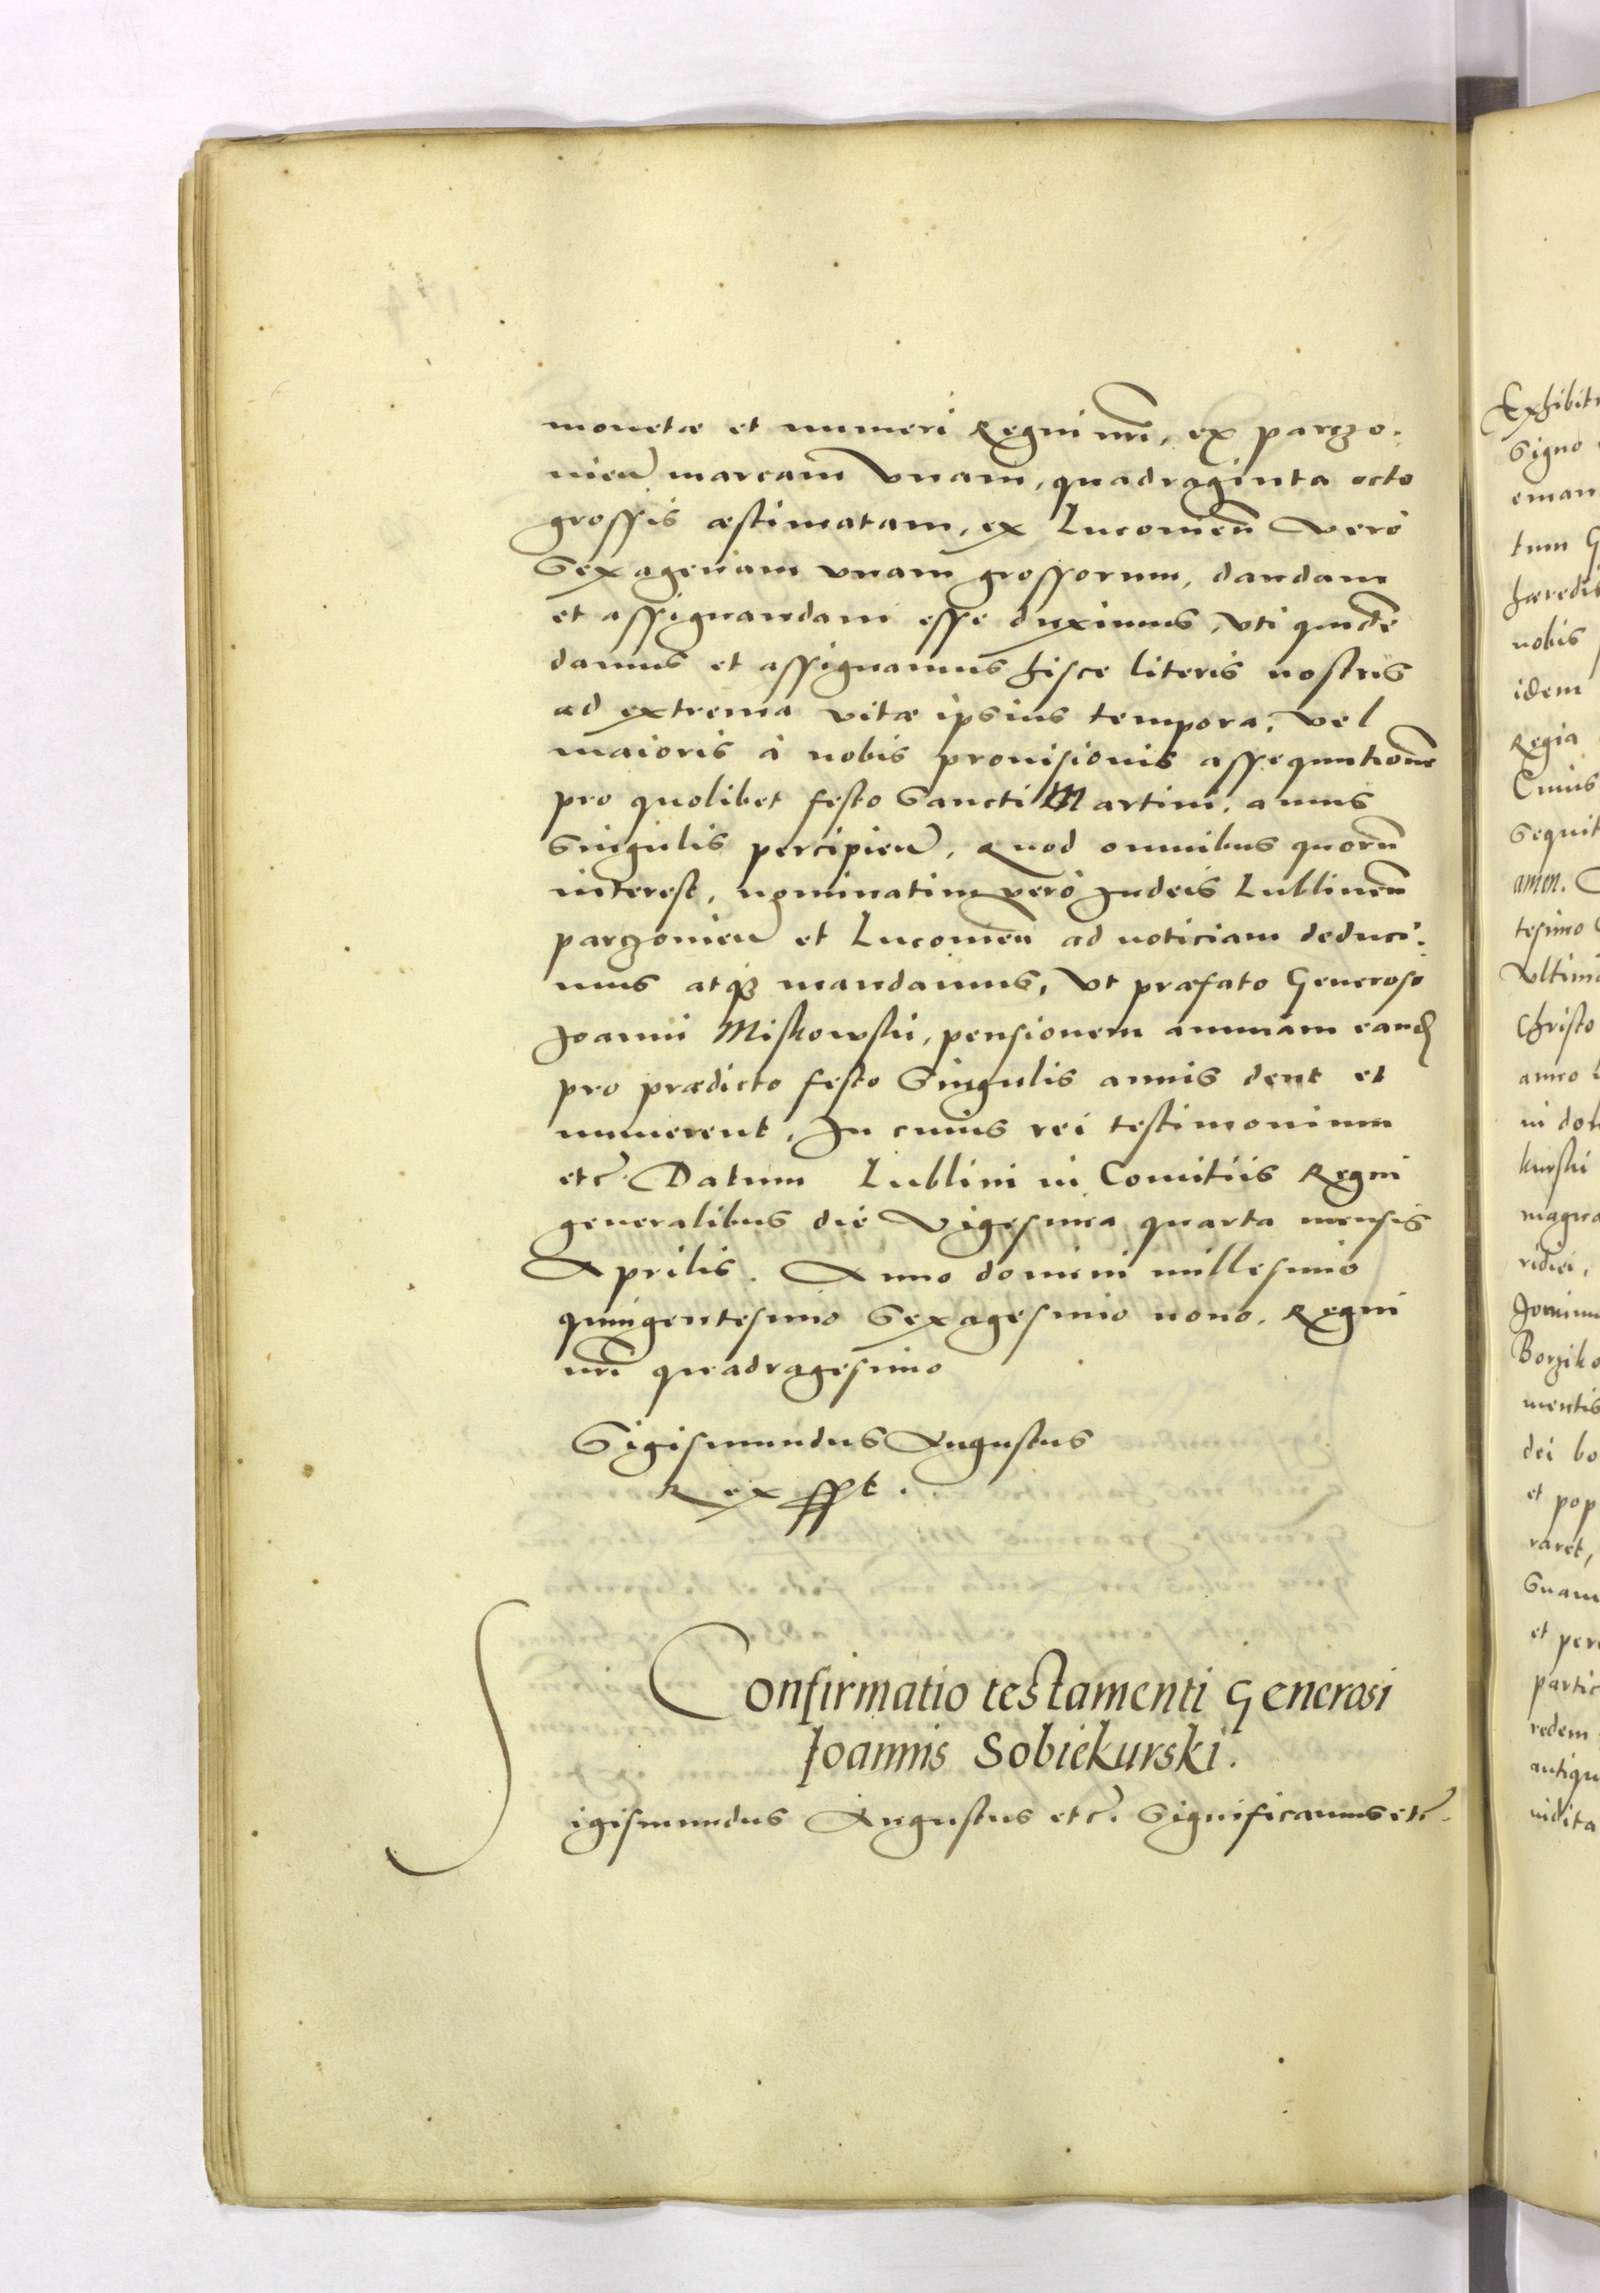 monetæ et numeri Regni nrĩ, ex parczo-
nien̄ marcam vnam, quadraginta octo
grossis æstimatam, ex Lucomieñ vero
Sexagenam vnam grossorum, dandam
et assignandam esse duximus, vti quidẽ
damus et assignamus hisce literis nostris
ad extrema vitæ ipsius tempora, vel
maioris à nobis prouisionis assequutionẽ
pro quolibet festo Sancti Martini, annis
Singulis percipien̄, Quod omnibus quorũ
interest, nominatim verò Judeis Lublineñ
parczonien̄ et Lucomieñ ad noticiam deduci-
mus atqȝ mandamus, Vt præfato Generoso
Joanni Miskowski, pensionem annuam eand̄
pro prædicto festo Singulis annis dent et
numerent, In cuius rei testimonium
etc̃. Datum Lublini in Comitiis Regni
generalibus die Vigesima quarta mensis
Aprilis. Anno domini millesimo
quingentesimo Sexagesimo nono. Regni
nrĩ quadragesimo
Sigismundus Augustus
Rex sspt.
Confirmatio testamenti Generosi
Joannis Sobiekurski.
Sigismundus Augustus etc̃. Significamus etc̃.
Exhibit
Signo
eman
tum G
hæredis
nobis
idem
Regia
Cuius
Sequit
amen.
tesimo
Vltima
Christo
anno
in do
kurski
magna
ridici,
Jominu
Borziko
mentis
dei bo
et pop
raret,
Suam
et per
partic
redem
antiqu
indita